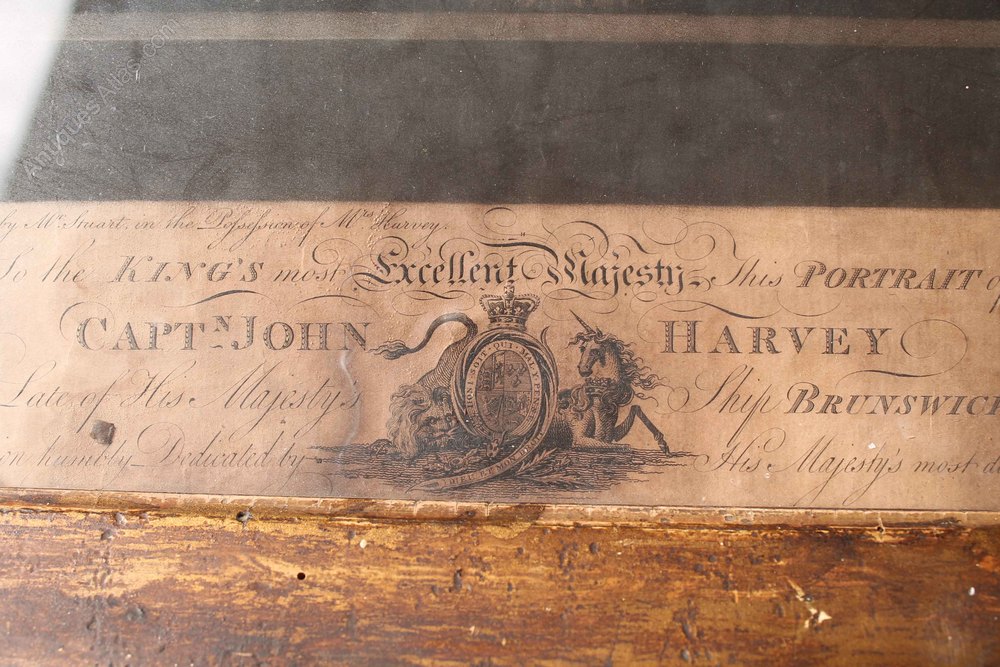 AntiquesAtlas.com
by Mr. Stuart, in the Possession of Mrs. Harvey.
To the KING'S most Excellent Majesty, This PORTRAIT of
CAPTN. JOHN HARVEY
Late of His Majesty's Ship BRUNSWICK
humbly Dedicated by His Majesty's most
HONI SOIT QUI MAL Y PENSE
DIEU ET MON DROIT